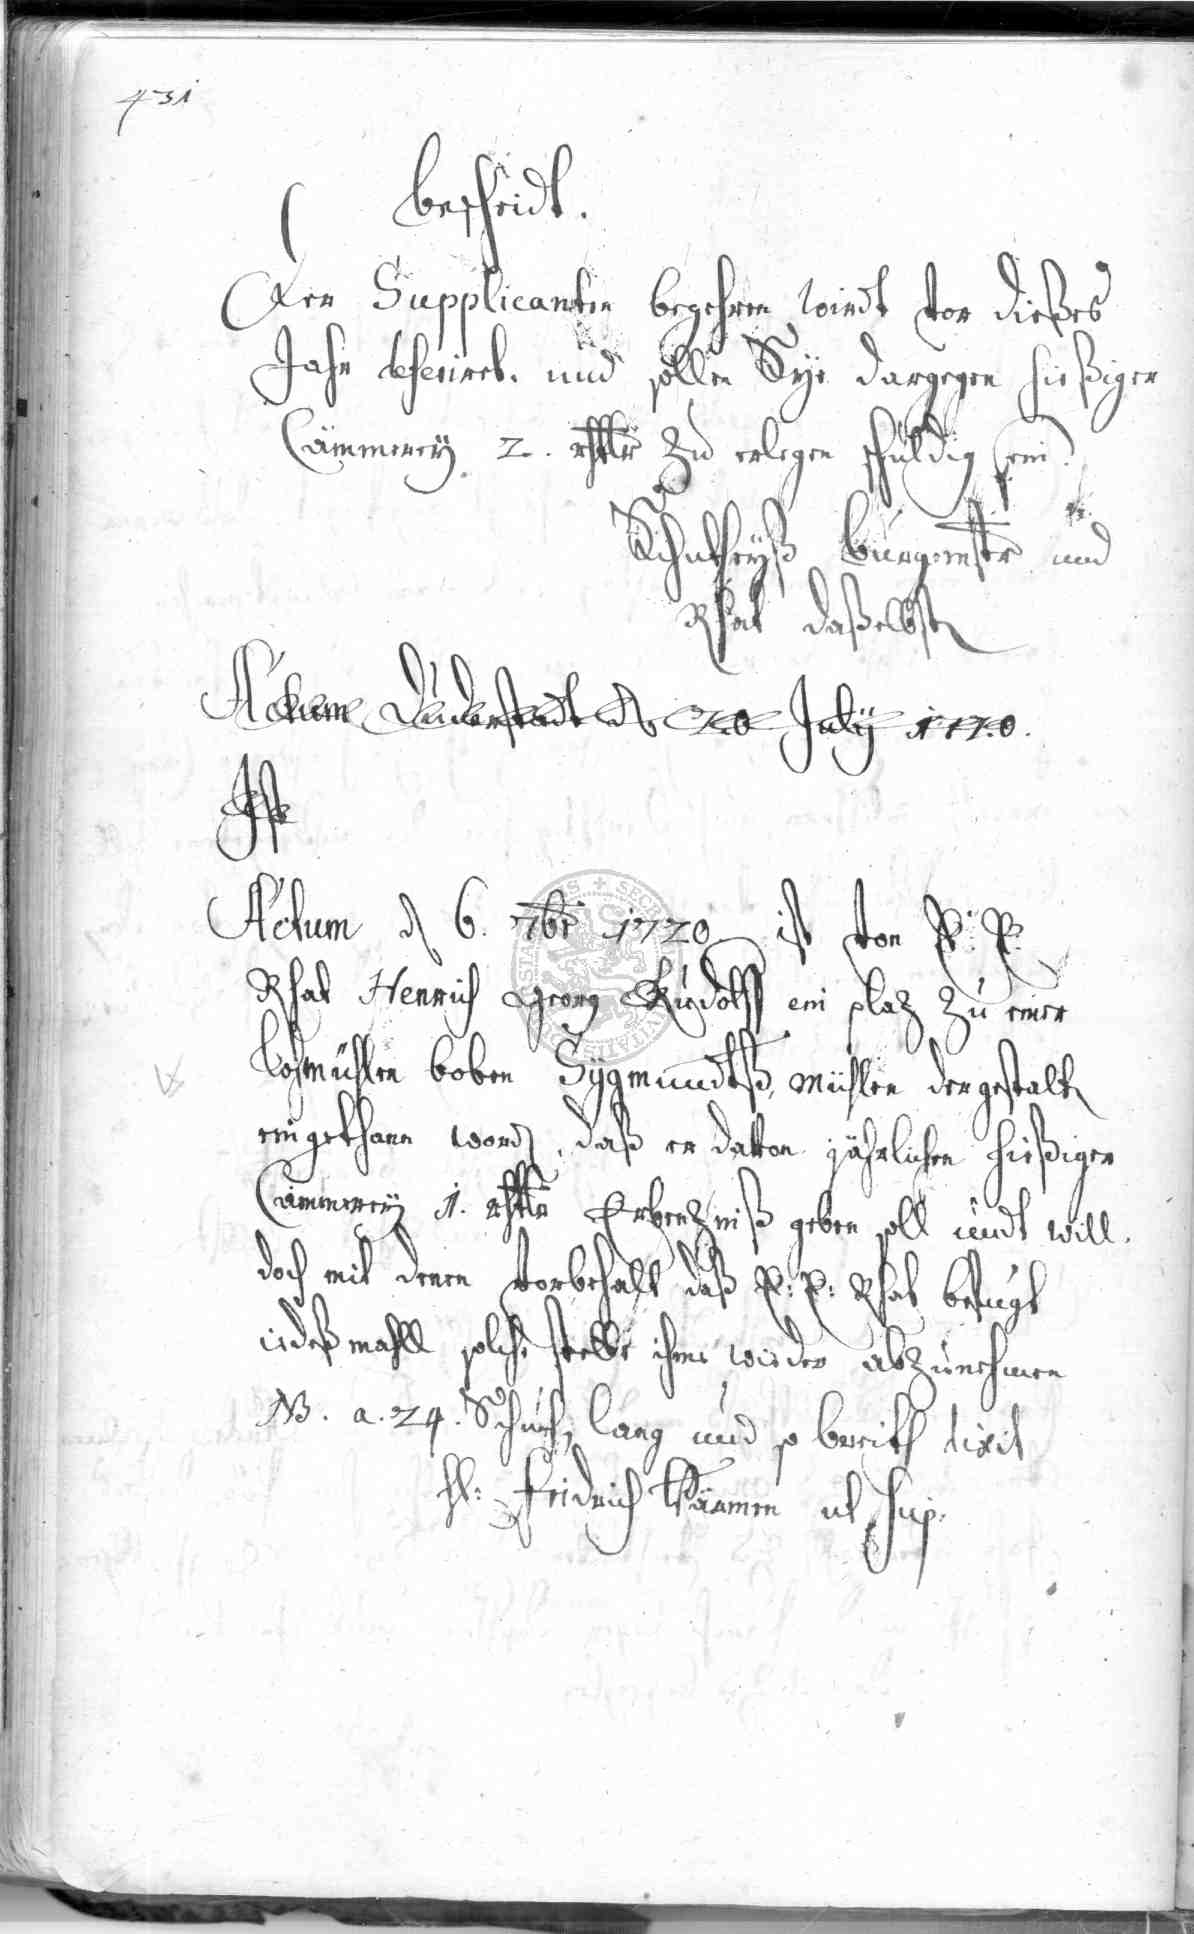 431
Bescheidt.
Der Supplicanten begehren wirdt vor dießes
Jahr deferiret. und sollen Sye dargegen hießiger
Cämmerey 2. rthlr zu erlegen schuldig sein.
Schultheyß Burgemstr und
Rhat daßelbsten
Actum Duderstadt d 20 July 1720.
Ist
Actum d 6. 7br 1720 ist von E: E:
Rhat Henrich Georg Rudolff ein plaz zu einer
Lohmühlen boben Sygmundtß Mühlen dergestalt
eingethan word, daß er davon jährlichen hießiger
Cämmerey 1. rthlr Erbenzinß geben soll undt will.
doch mit denen vorbehalt daß E: E: Rhat befugt
iedeßmahll solche stelle ihme wieder abzunehmen
NB. a. 24. Schuch lang und so breith dixit
H: Fridrich ut sup.